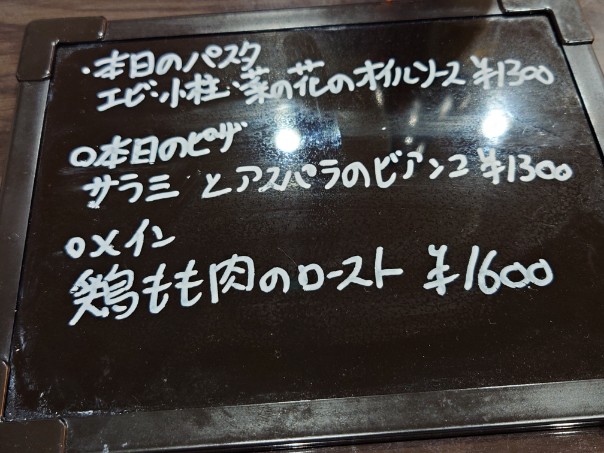 ・本日のパスタ
エビ・小柱・菜の花のオイルソース ¥1300
○本日のピザ
サラミとアスパラのビアンコ ¥1300
○メイン
鶏もも肉のロースト ¥1600